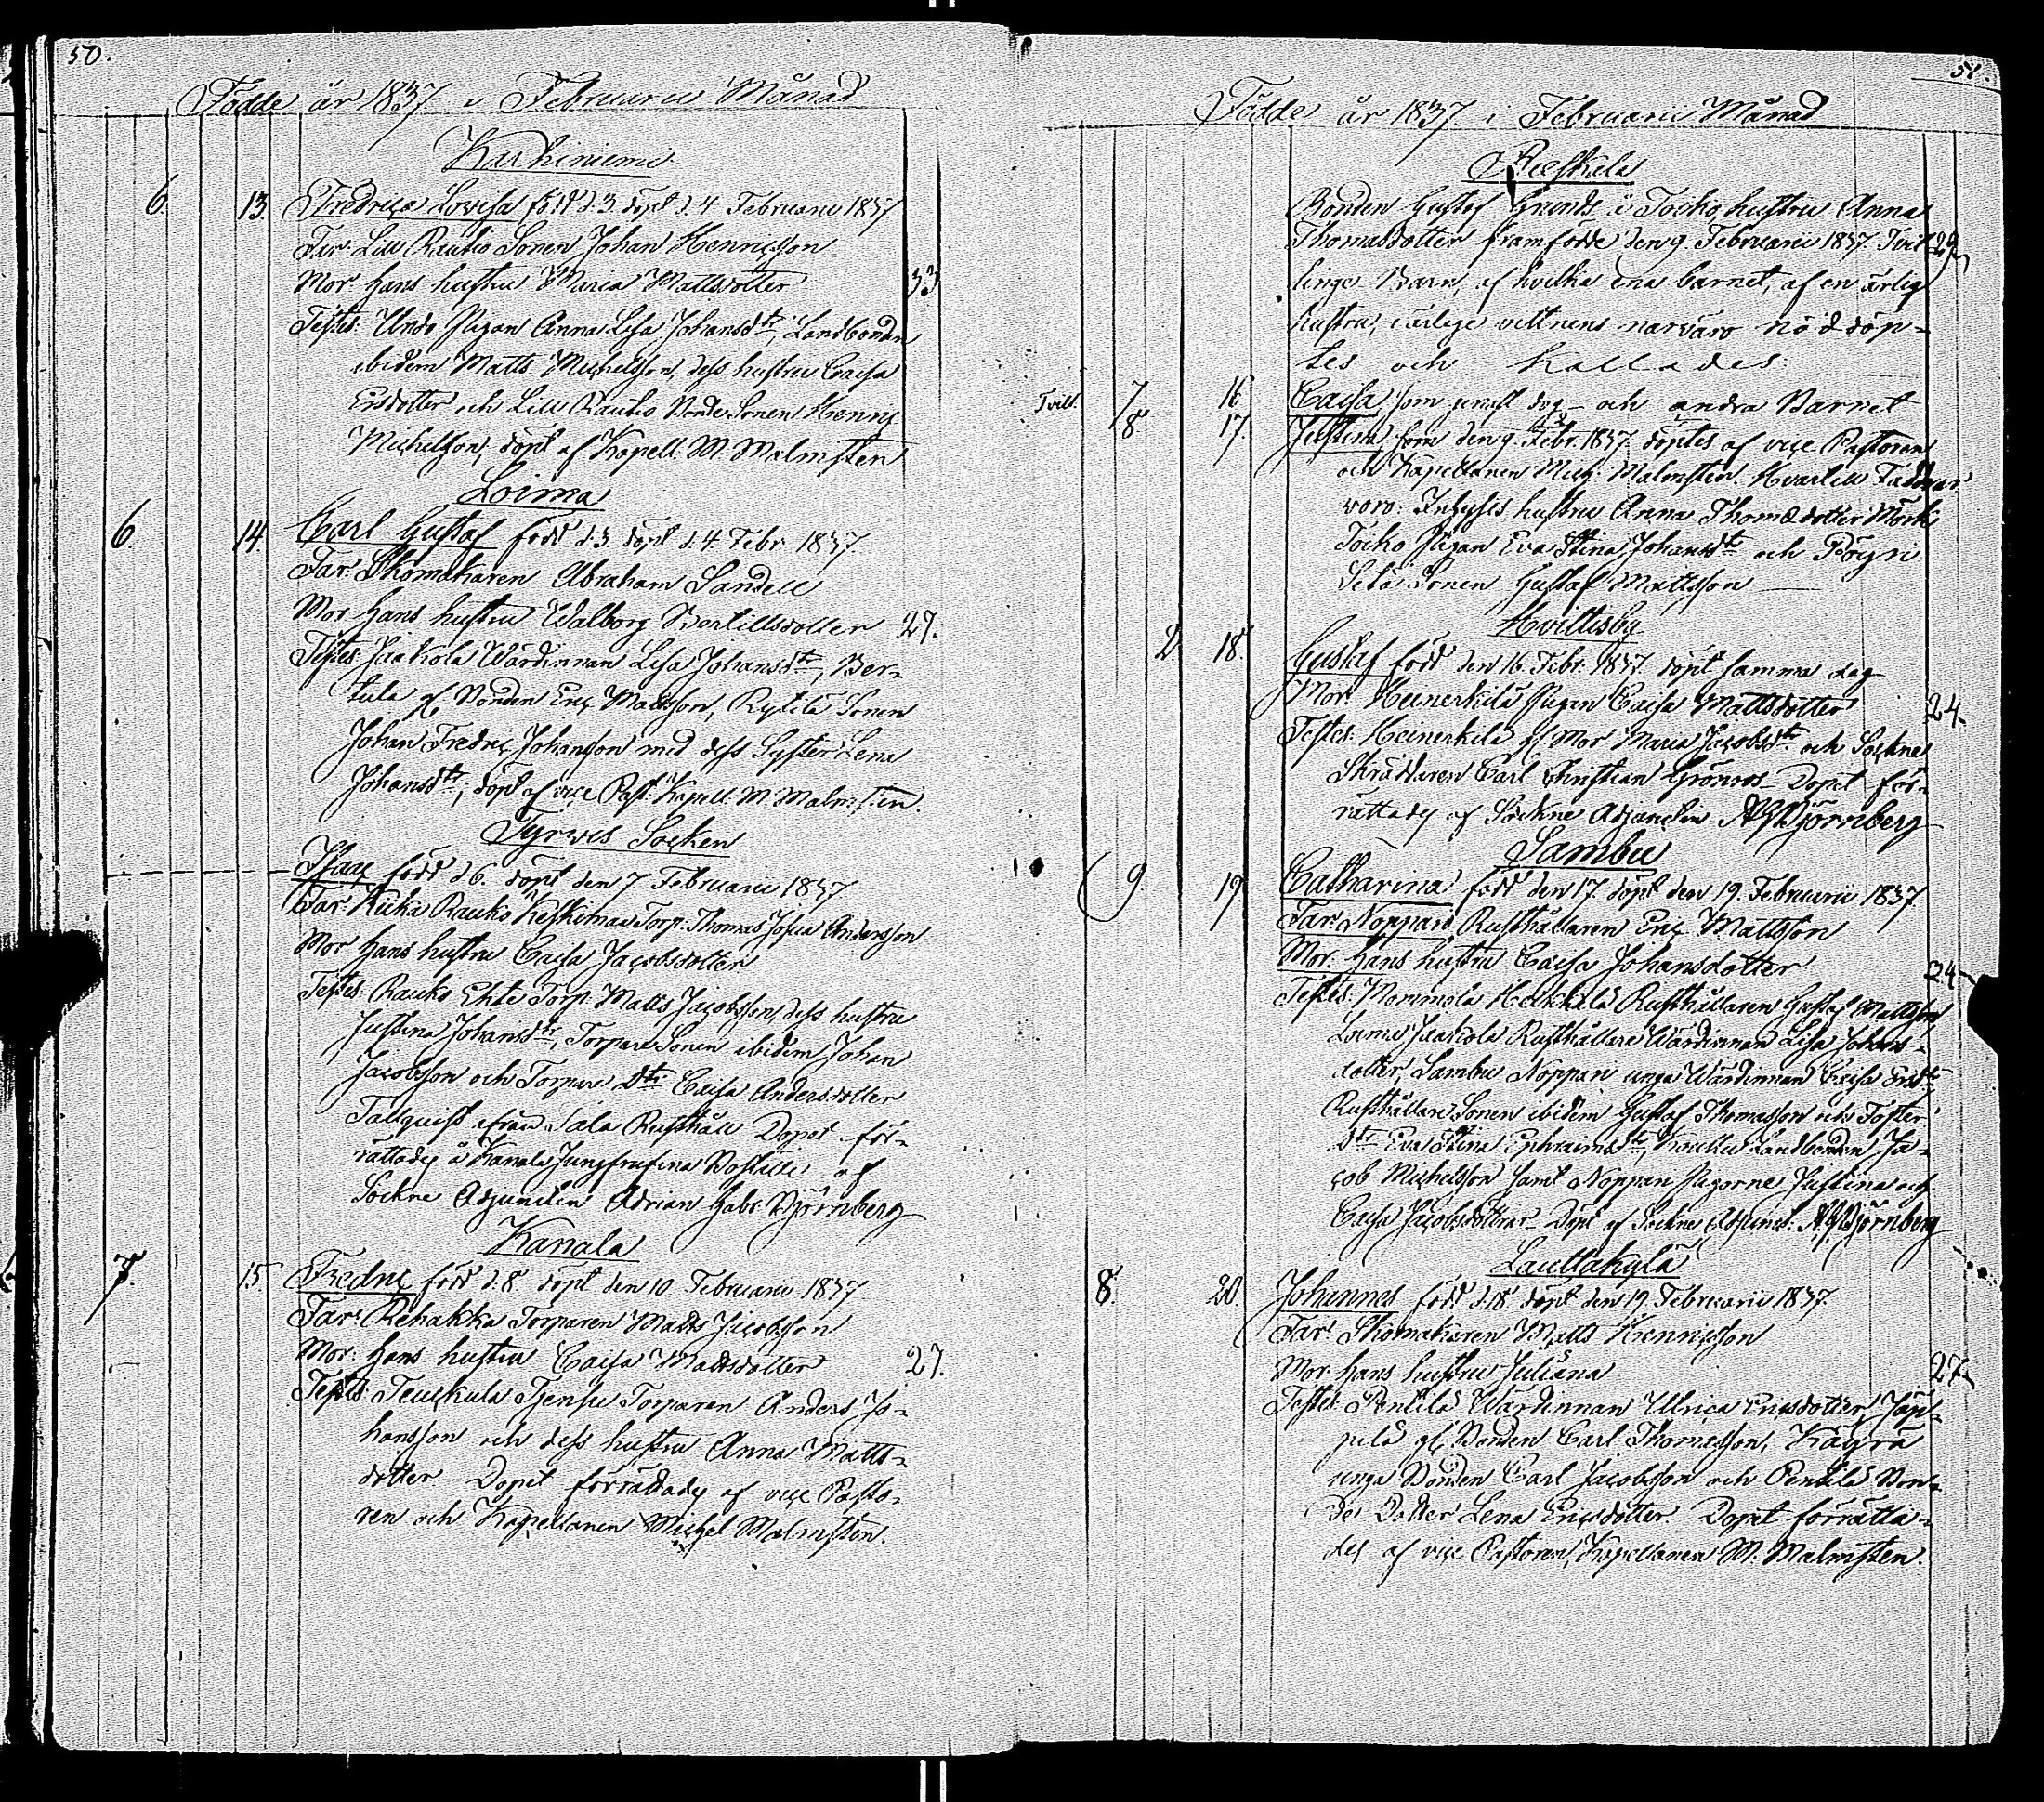 50.
Födde år 1837 i Februarii Månad
Karhiniemi
6. 13. Fredrica Lovisa född d. 3. döpt d. 4 Februarii 1837
Far: Lill Raukio Sonen Johan Henricsson
Mor hans hustru Maria Mattsdotter 33
Testes: Undo Pigan Anna Lisa Johansdtr, Landbonden
ibidem Matts Michelsson, dess hustru Caisa
Ersdotter och Lill Raukio Bonde Sonen Henric
Michelsson, döpt af Kapell. M. Malmsten
Loima
6. 14. Carl Gustaf född d. 3. döpt d. 4 Febr 1837.
Far: Skomakaren Abraham Sandell
Mor hans hustru Walborg Bertillsdotter 27.
Testes: Jaakola Wärdinnan Lisa Johansdtr, Ber-
tula gl. Bonden Eric Mattsson, Rytilä Sonen
Johan Fredric Johansson med dess Syster Lena
Johansdtr, döpt af vice Past. Kapell. M. Malmsten.
Tyrvis Socken
Isac född d 6. döpt den 7. Februarii 1837
Far: Kiika Rauko Keskimaa Torp. Thomas Josua Andersson
Mor hans hustru Caisa Jacobsdotter
Testes: Rauko Torp. Matts Jacobsson, dess hustru
Justina Johansdtr, Torpare Sonen ibidem Johan
Jacobsson och Torpare Dtr Caisa Andersdotter
Tallquist ifrån Sala Rusthåll Dopet för-
rättades å Kanala Jungfrufina Boställe af
Sockne Adjuncten Adrian Gabr. Björnberg
Kanala
7. 15. Fredric född d. 8. döpt den 10 Februarii 1837
Far: Rehakka Torparen Matts Jacobsson
Mor: hans hustru Caisa Mattsdotter 27.
Testes: Torparen Anders Jo-
hansson och dess hustru Anna Matts-
dotter. Dopet förrättades af vice Pasto-
ren och Kapellanen Michel Malmsten.
51.
Födde år 1837 i Februarii Månad
Reeskala
Bonden Gustaf Grunds i Tocko, hustru Anna
Thomasdotter framfödde den 9. Februarii 1837. Tvil- 29
linge Barn, af hvilka ena barnet, af en ärlig
hustru, i ärlige vittnens närvaro nöddöp-
tes och kallades:
Tvill. 7 16 Caisa som genast dog — och andra Barnet
8 17. Justina som den 9. Febr. 1837. döptes af vice Pastoren
och Kapellanen Mich. Malmsten. Hvartill Faddrar
voro: Inhyses hustru Anna Thomædotter Mörk
Tocko Pigan Eva Stina Johansdtr och Pöyri
Seta Sonen Gustaf Mattsson —
Hvittisby
2 18. Gustaf född den 16. Febr. 1837 döpt samma dag
Mor: Heinerkilä Pigan Caisa Mattsdotter 24.
Testes: Heinerkilä gl Mor Maria Jacobsdtr och Sockne
Skräddaren Carl Christian Grönros — Dopet för-
rättades af Sockne Adjuncten AGBjörnberg
Sambu
9 19 Catharina född den 17. döpt den 19. Februarii 1837
Far: Noppari Rusthållaren Eric Mattsson
Mor: hans hustru Caisa Johansdotter 24
Testes: Mommola Heikkilä Rusthållaren Gustaf Mattsson
Loima Jaakola Rusthållare Wärdinnan Lisa Johans-
dotter, Sambu Noppari unga Wärdinnan Caisa Ersdtr
Rusthållare Sonen ibidem Gustaf Thomasson och Foster
Dtr Eva Stina Ephraimsdtr, Landbonden Ja-
cob Michelsson samt Noppari Pigorne Justina och
Caisa Jacobsdöttrar — Döpt af Sockne Adjunct: AGBjörnberg
Lauttakylä
8. 20. Johannes född d. 18 döpt den 19. Februarii 1837.
Far: Skomakaren Matts Henricsson
Mor hans hustru Juliana 27
Testes: Pentilä Wärdinnan Ulrica Ericsdotter, Jap-
pilä gl. Bonden Carl Thomasson, Käyrä
unga Bonden Carl Jacobsson och Pentilä Bon-
de Dotter Lena Ericsdotter. Dopet förrätta-
des af vice Pastoren, Kapellanen M. Malmsten.